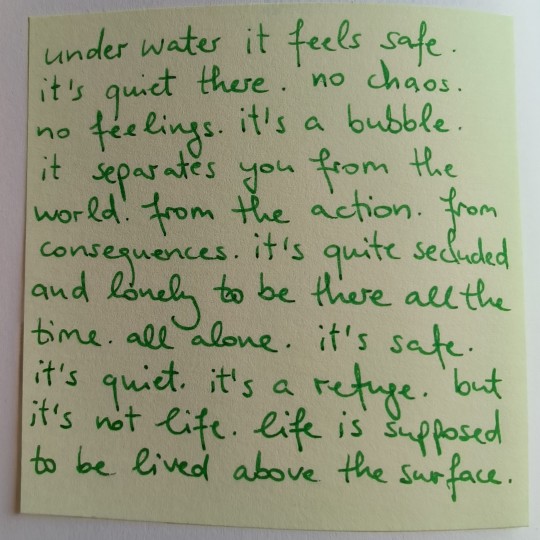 under water it feels safe.
it's quiet there. no chaos.
no feelings. it's a bubble.
it separates you from the
world. from the action. from
consequences. it's quite secluded
and lonely to be there all the
time. all alone. it's safe.
it's quiet. it's a refuge. but
it's not life. life is supposed
to be lived above the surface.